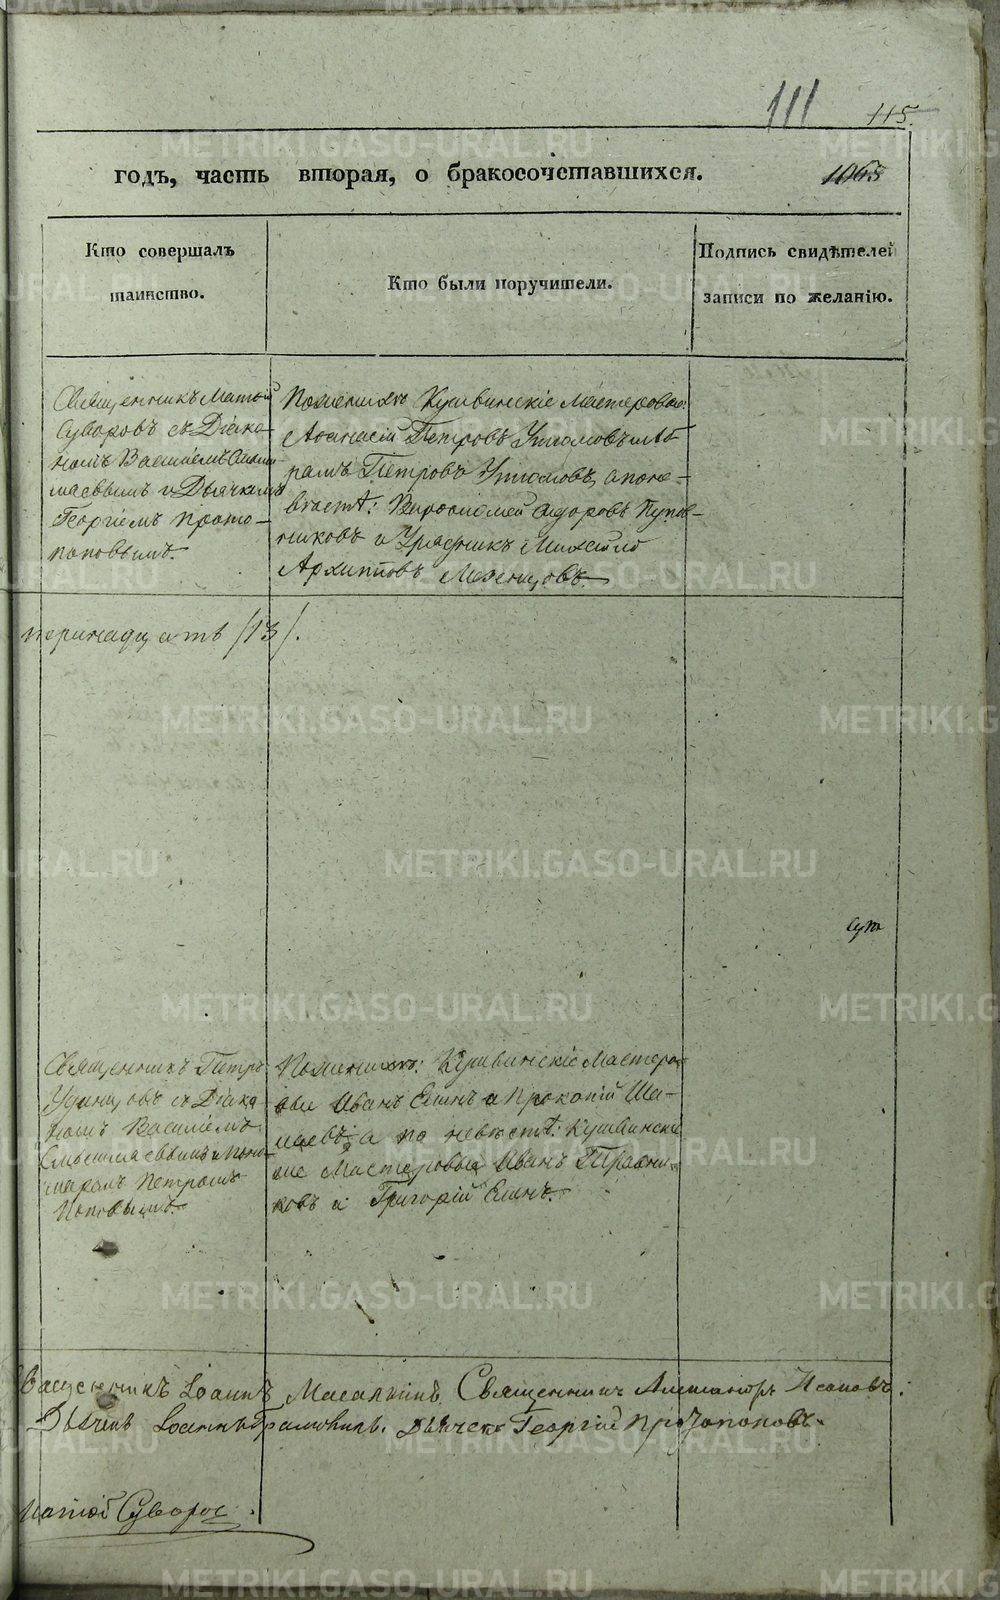 111
115.
годъ, часть вторая, о бракосочетавшихся.
1065
Кто совершалъ
таинство.
Кто были поручители.
Подпись свидѣтелей
записи по желанію.
Священникъ Матѳій
Суворовъ съ Діако-
номъ Василіемъ
и Дьячкомъ
Георгіемъ Прото-
поповымъ.
По женихѣ Кушвинскіе Мастеровые:
Аѳанасій Петровъ Утюмовъ и Аб
рамъ Петровъ Утюмовъ, а по не-
вѣстѣ: Варѳоломей Ѳедоровъ Пупов-
никовъ и Урядникъ Михаилъ
Архиповъ Мезенцовъ.
тринадцать /13/.
Суть
Священникъ Петръ
Удинцовъ съ Діако-
номъ Василіемъ
Смышляевымъ и Поно-
маремъ Петромъ
Поповымъ.
По женихѣ: Кушвинскіе Мастеро-
вые Иванъ Елинъ и Прокопій Ша-
а по невѣстѣ: Кушвинскіе
Мастеровые Иванъ Травни-
ковъ и Григорій Елинъ.
Священникъ Іоаннъ Масалкинъ Священникъ
Іоаннъ Дьячекъ Георгій Протопоповъ.
Матѳій Суворовъ.
METRIKI.GASO-URAL.RU